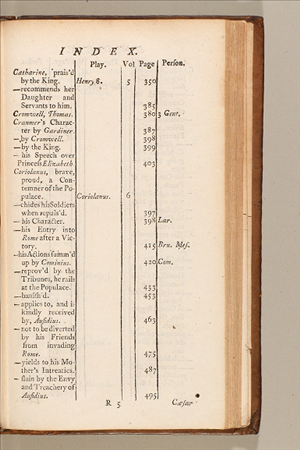 INDEX.
Play. Vol Page Person.
Catharine, prais'd
by the King. Henry 8. 5 350
—recommends her
Daughter and
Servants to him. 385
Cromwell, Thomas. 380 3 Gent.
Cranmer's Charac-
ter by Gardiner. 387
—by Cromwell. 398
—by the King. 399
— his Speech over
Princess Elizabeth. 403
Coriolanus, brave,
proud, a Con-
temner of the Po-
pulace. Coriolanus. 6
—chides his Soldiers
when repuls'd. 397
— his Character. 398 Lar.
— his Entry into
Rome after a Vic-
tory. 415 Bru. Mes.
—his Actions summ'd
up by Cominius. 420 Com.
—reprov'd by the
Tribunes, he rails
at the Populace. 433
— banish'd. 453
— applies to, and is
kindly received
by, Aufidius. 463
— not to be diverted
by his Friends
from invading
Rome. 475
—yields to his Mo-
ther's Intreaties. 487
— slain by the Envy
and Treachery of
Aufidius. 495
R 5 Cæsar